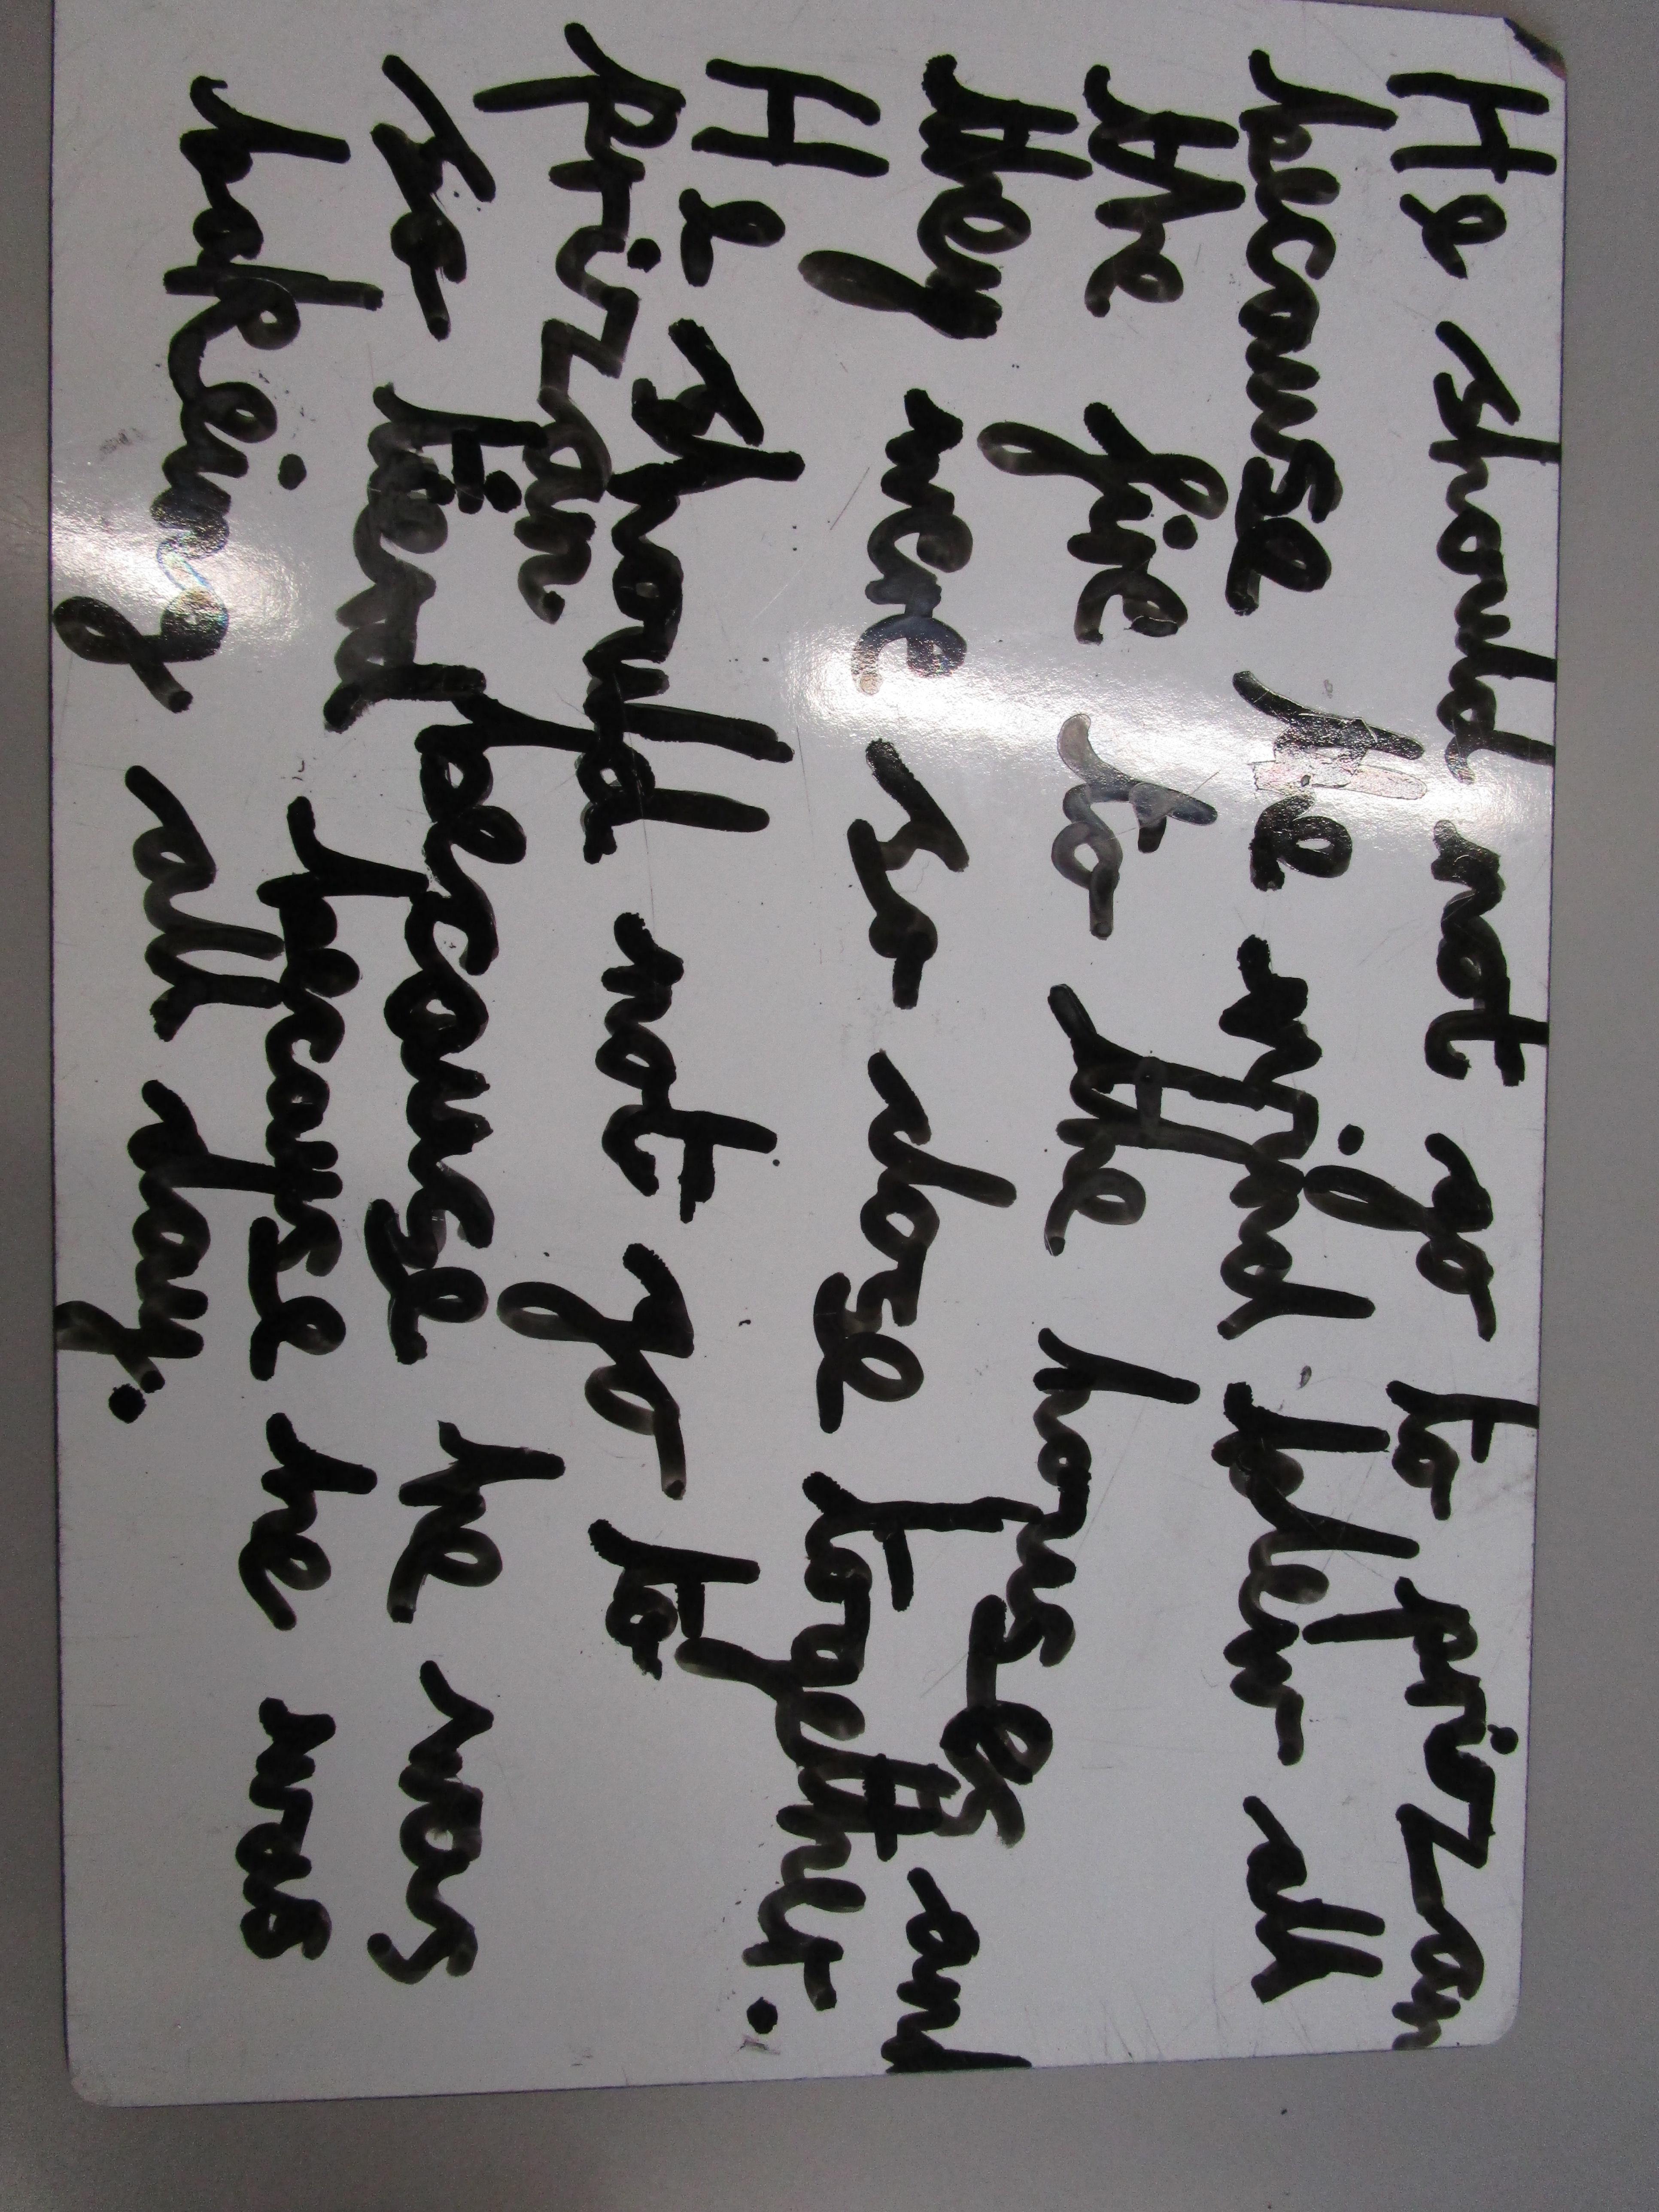 He should not go to prizan
because the wind blew all
the fire to the houses and
they were so close torgether.
He should not go to
prizan because he was
so tierd because he was
bakeing all day.